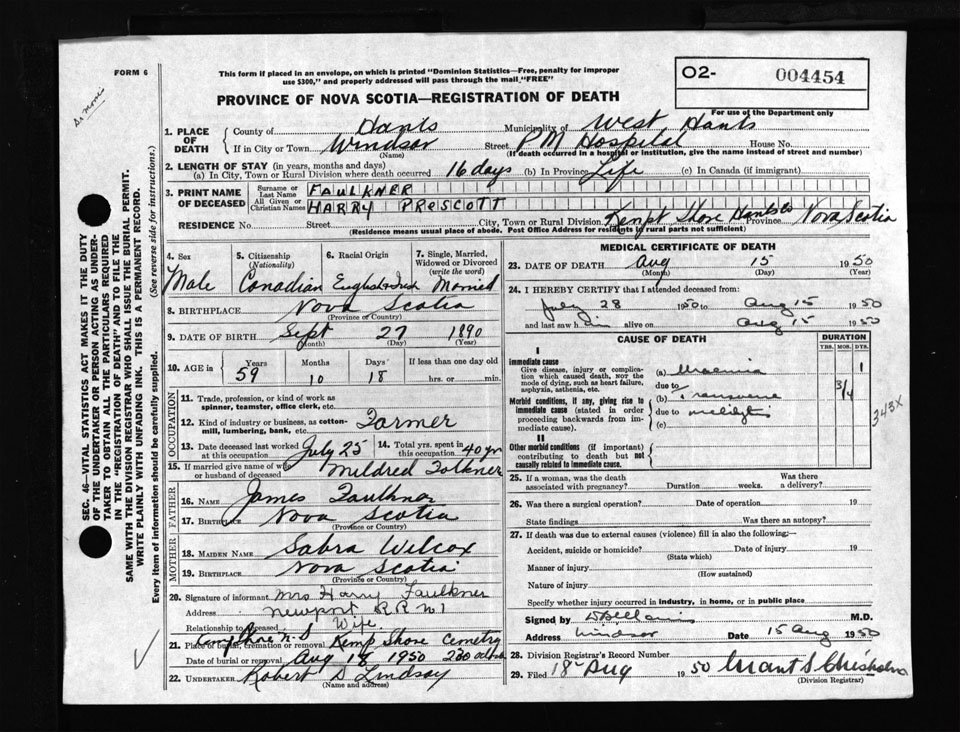 FORM 6
This form if placed in an envelope, on which is printed "Dominion Statistics—Free, penalty for improper
use $300," and properly addressed will pass through the mail "FREE"
PROVINCE OF NOVA SCOTIA—REGISTRATION OF DEATH
O2- 004454
For use of the Department only
SEC. 46—VITAL STATISTICS ACT MAKES IT THE DUTY
OF THE UNDERTAKER OR PERSON ACTING AS UNDER-
TAKER TO OBTAIN ALL THE PARTICULARS REQUIRED
IN THE "REGISTRATION OF DEATH" AND TO FILE THE
SAME WITH THE DIVISION REGISTRAR WHO SHALL ISSUE THE BURIAL PERMIT.
WRITE PLAINLY WITH UNFADING INK. THIS IS A PERMANENT RECORD.
Every item of information should be carefully supplied. (See reverse side for instructions.)
1. PLACE OF DEATH County of Hants Municipality of West Hants
If in City or Town Windsor Street P M Hospital House No.
(Name) (If death occurred in a hospital or institution, give the name instead of street and number)
2. LENGTH OF STAY (in years, months and days)
(a) In City, Town or Rural Division where death occurred 16 days (b) In Province Life (c) In Canada (if immigrant)
3. PRINT NAME OF DECEASED Surname or Last Name FAULKNER
All Given or Christian Names HARRY PRESCOTT
RESIDENCE No. Street City, Town or Rural Division Kempt Shore Hants Co Province Nova Scotia
(Residence means usual place of abode. Post Office Address for residents in rural parts not sufficient)
4. Sex 5. Citizenship (Nationality) 6. Racial Origin 7. Single, Married, Widowed or Divorced (write the word)
Male Canadian English & Irish Married
8. BIRTHPLACE Nova Scotia
(Province or Country)
9. DATE OF BIRTH Sept 27 1890
(Month) (Day) (Year)
10. AGE in Years Months Days If less than one day old
59 10 18 hrs. or min.
OCCUPATION
11. Trade, profession, or kind of work as
spinner, teamster, office clerk, etc.
12. Kind of industry or business, as cotton-
mill, lumbering, bank, etc. Farmer
13. Date deceased last worked at this occupation July 25 14. Total yrs. spent in this occupation 40 yrs
15. If married give name of wife
or husband of deceased Mildred Folkner
FATHER
16. Name James Faulkner
17. Birthplace Nova Scotia
(Province or Country)
MOTHER
18. MAIDEN NAME Sabra Wilcox
19. BIRTHPLACE Nova Scotia
(Province or Country)
20. Signature of informant Mrs Harry Faulkner
Address Newport R R No 1
Relationship to deceased Wife
21. Place of burial, cremation or removal Kemp Shore N.S Kemp Shore Cemetry
Date of burial or removal Aug 18 1950 2.30 oclock
22. UNDERTAKER Robert D Lindsay
(Name and address)
MEDICAL CERTIFICATE OF DEATH
23. DATE OF DEATH Aug 15 1950
(Month) (Day) (Year)
24. I HEREBY CERTIFY that I attended deceased from:
July 28 1950 to Aug 15 1950
and last saw him alive on Aug 15 1950
CAUSE OF DEATH DURATION
YRS. MOS. DYS.
I
Immediate cause
Give disease, injury or complica-
tion which caused death, NOT the
mode of dying, such as heart failure,
asphyxia, asthenia, etc.
(a) Uraemia 1
due to
Morbid conditions, if any, giving rise to
immediate cause (stated in order
proceeding backwards from im-
mediate cause).
(b) Transverse 3/4
due to myelitis
(c)
343X
II
Other morbid conditions (if important)
contributing to death but not
causally related to immediate cause.
25. If a woman, was the death
associated with pregnancy? Duration weeks. Was there a delivery?
26. Was there a surgical operation? Date of operation 19
State findings Was there an autopsy?
27. If death was due to external causes (violence) fill in also the following:—
Accident, suicide or homicide? Date of injury 19
(State which)
Manner of injury
(How sustained)
Nature of injury
Specify whether injury occurred in industry, in home, or in public place
Signed by M.D.
Address Windsor Date 15 Aug 1950
28. Division Registrar's Record Number
29. Filed 18 Aug 1950 Grant S Chisholm
(Division Registrar)